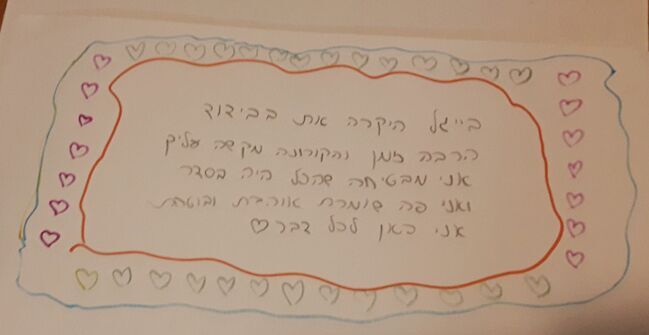 בייגל היקרה את בבידוד
הרבה זמן והקורונה מקשה עליך
אני מבטיחה שהכל היה בסדר
ואני פה שומרת אוהבת ובוטחת
אני כאן לכל דבר♡